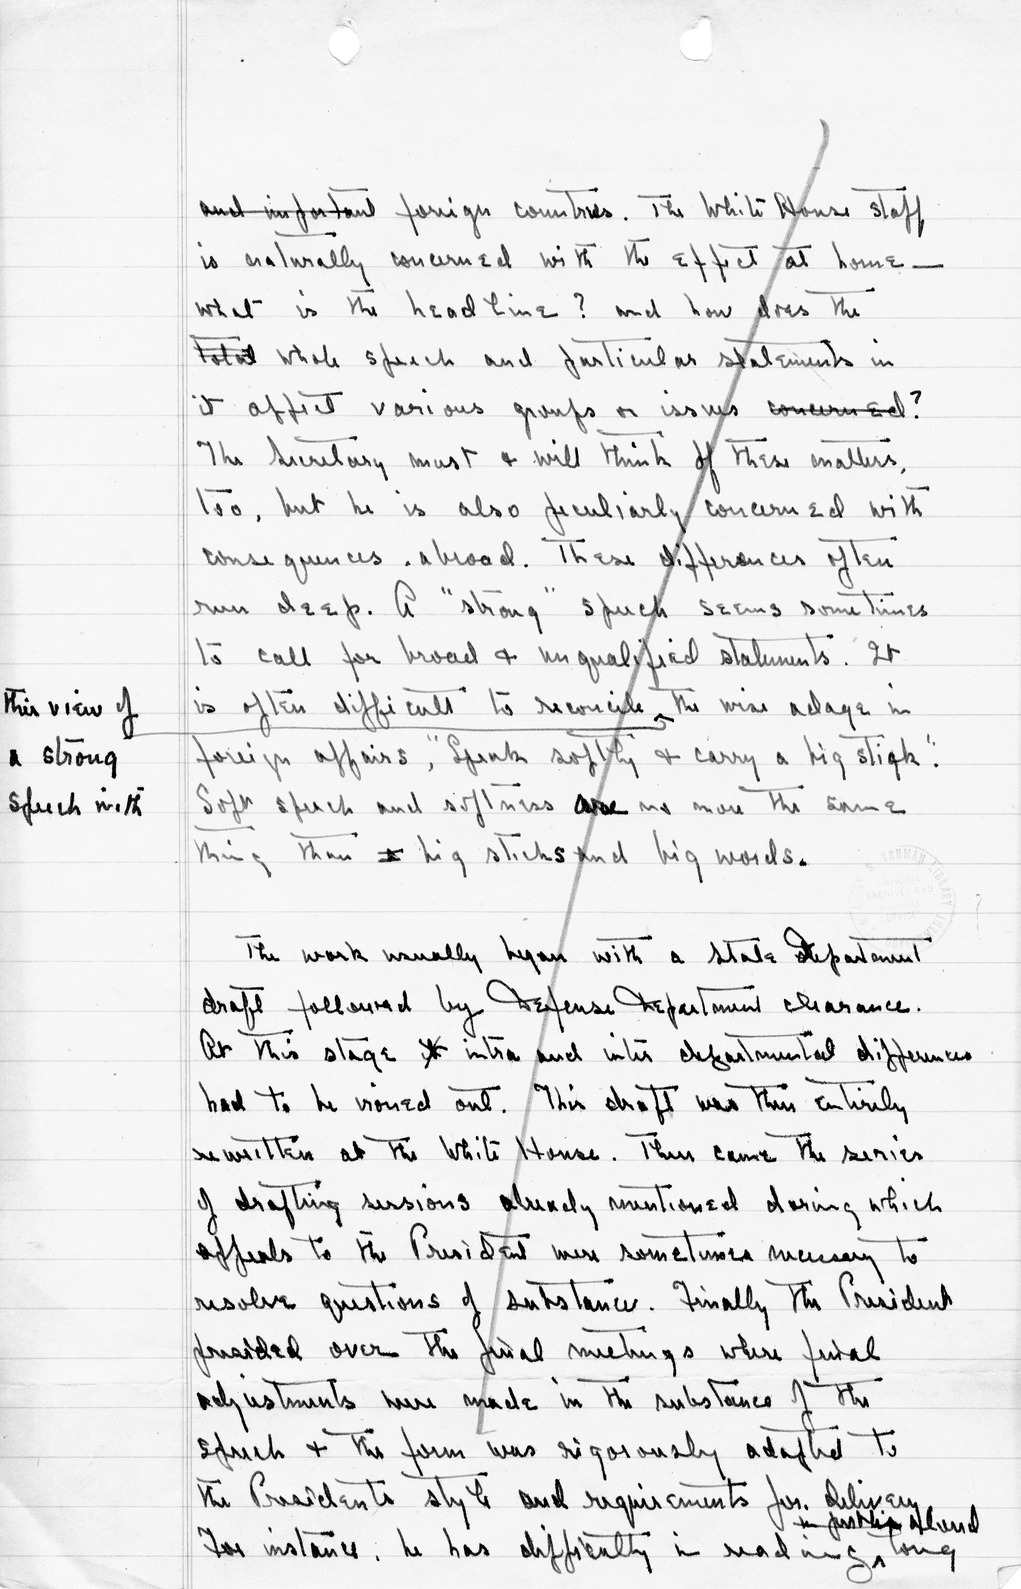 and important foreign countries. The White House staff
is naturally concerned with the effect at home —
what is the headline? and how does the
total whole speech and particular statements in
it affect various groups or issues concerned?
The Secretary must & will think of these matters,
too, but he is also peculiarly concerned with
consequences abroad. These differences often
run deep. A "strong" speech seems sometimes
to call for broad & unqualified statements. It
is often difficult to reconcile the wise adage in
this view of
a strong
speech with
foreign affairs, "Speak softly & carry a big stick".
Soft speech and softness are no more the same
thing than big sticks and big words.
The work usually began with a State Department
draft followed by Defense Department clearance.
At this stage intra and inter departmental differences
had to be ironed out. This draft was then entirely
rewritten at the White House. Then came the series
of drafting sessions already mentioned during which
appeals to the President were sometimes necessary to
resolve questions of substance. Finally the President
presided over the final meetings where final
adjustments were made in the substance of the
speech & the form was rigorously adapted to
the Presidents style and requirements for delivery
aloud
For instance, he has difficulty in reading long